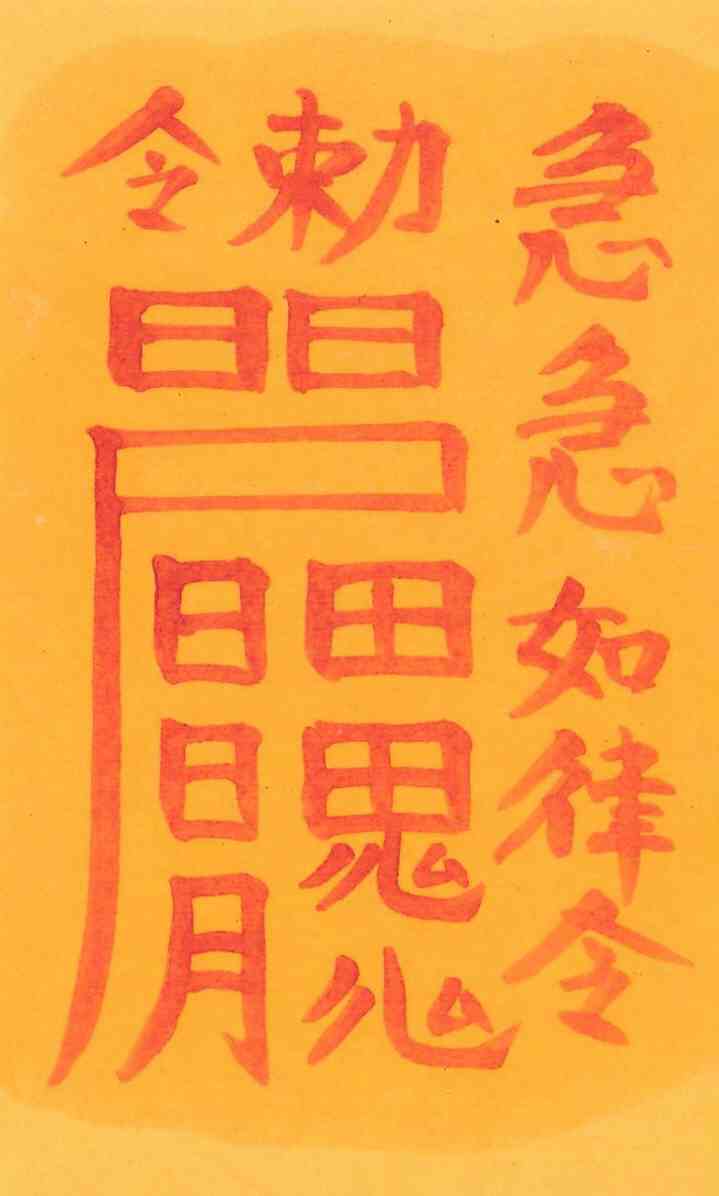 急急如律令
勅令
日日
尸
田鬼
日日月